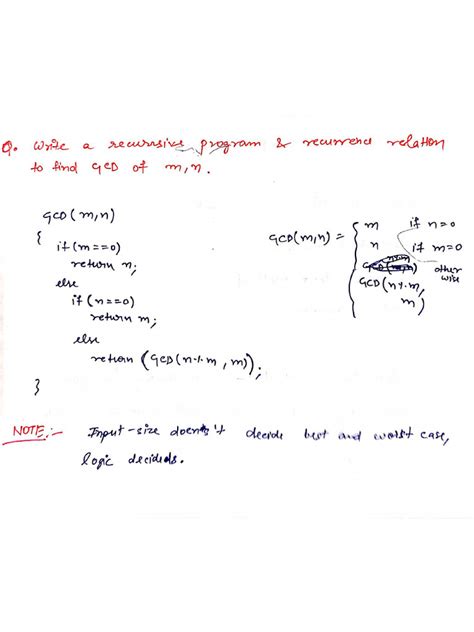 Q. Write a recurrsive program & recurrence relation
to find GCD of m,n.
GCD(m,n)
{
if (m==0)
return n;
else
if (n==0)
return m;
else
return (GCD(n%m, m));
}
GCD(m,n) = { m if n=0
n if m=0
GCD(n%m, m) otherwise
NOTE:- Input-size doesn't decide best and worst case,
logic decides.